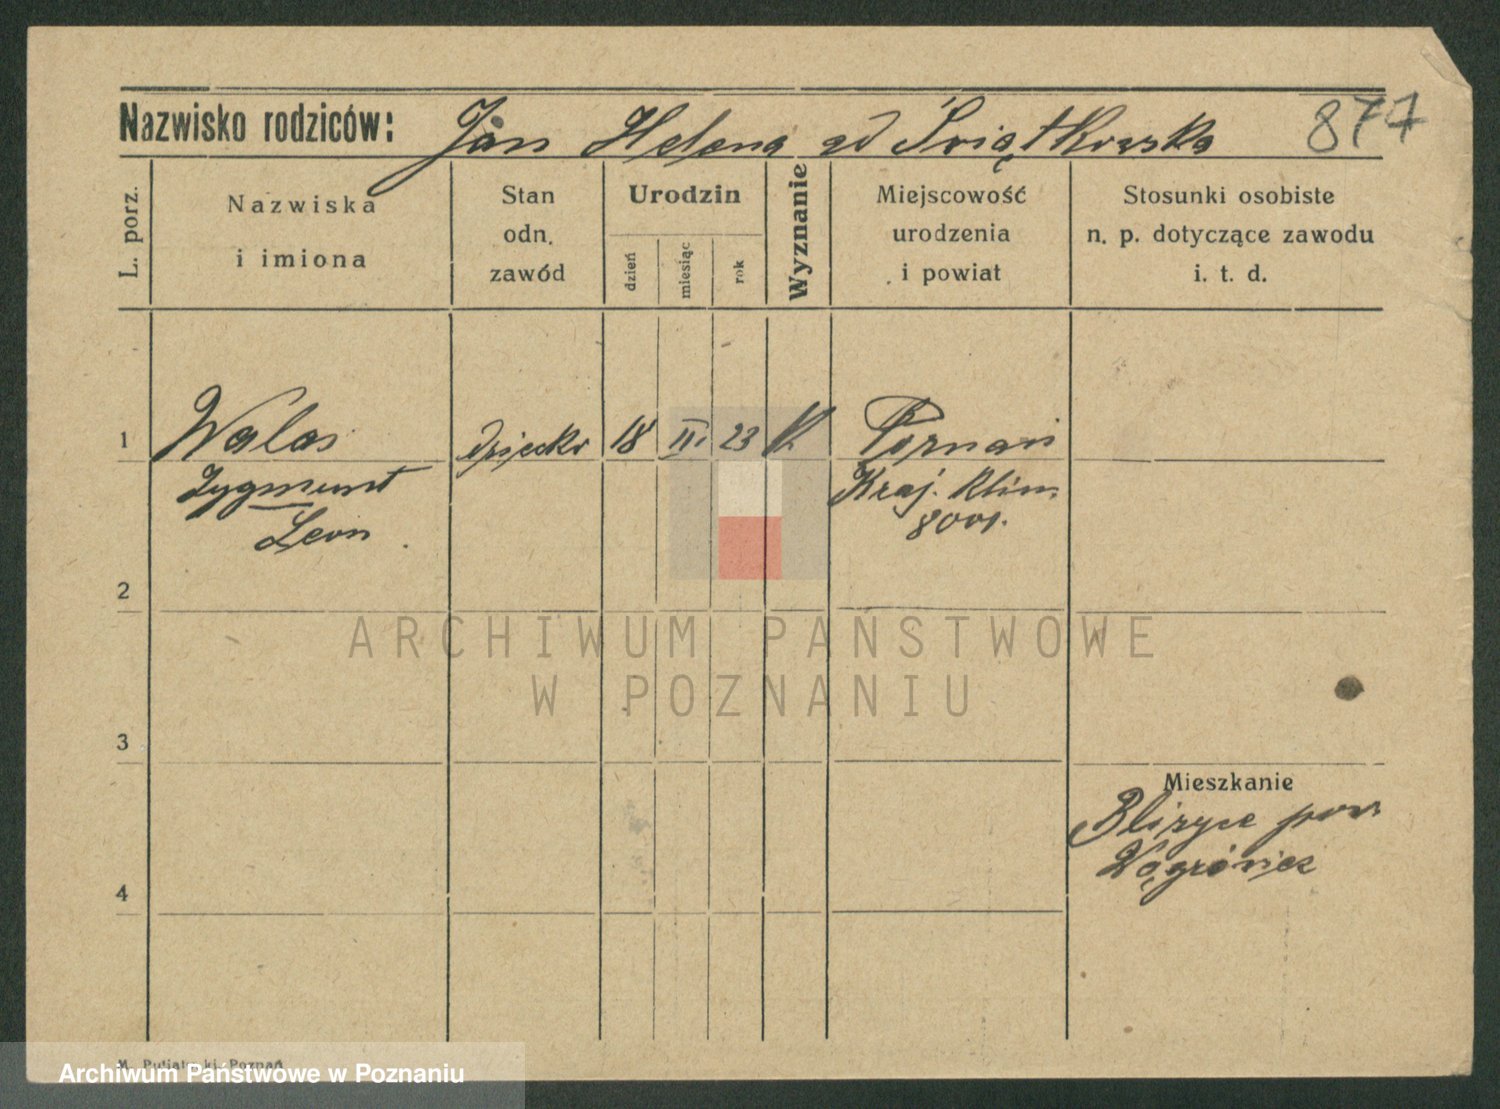 Nazwisko rodziców: Jan Helena od Świątkowska 877
L. porz.
Nazwiska
i imiona
Stan
odn.
zawód
Urodzin
dzień
miesiąc
rok
Wyznanie
Miejscowość
urodzenia
i powiat
Stosunki osobiste
n. p. dotyczące zawodu
i. t. d.
1 Walas dziecko 18 II. 23 k. Poznań
Zygmunt Kraj. Klin.
Leon
2
ARCHIWUM PAŃSTWOWE
W POZNANIU
3
Mieszkanie
Bliżyce pow
Wągrówiec
4
Poznań
Archiwum Państwowe w Poznaniu